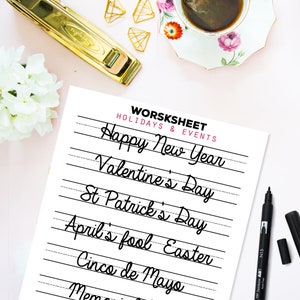 WORSKSHEET
HOLIDAYS & EVENTS
Happy New Year
Valentine's Day
St Patrick's Day
April's fool Easter
Cinco de Mayo